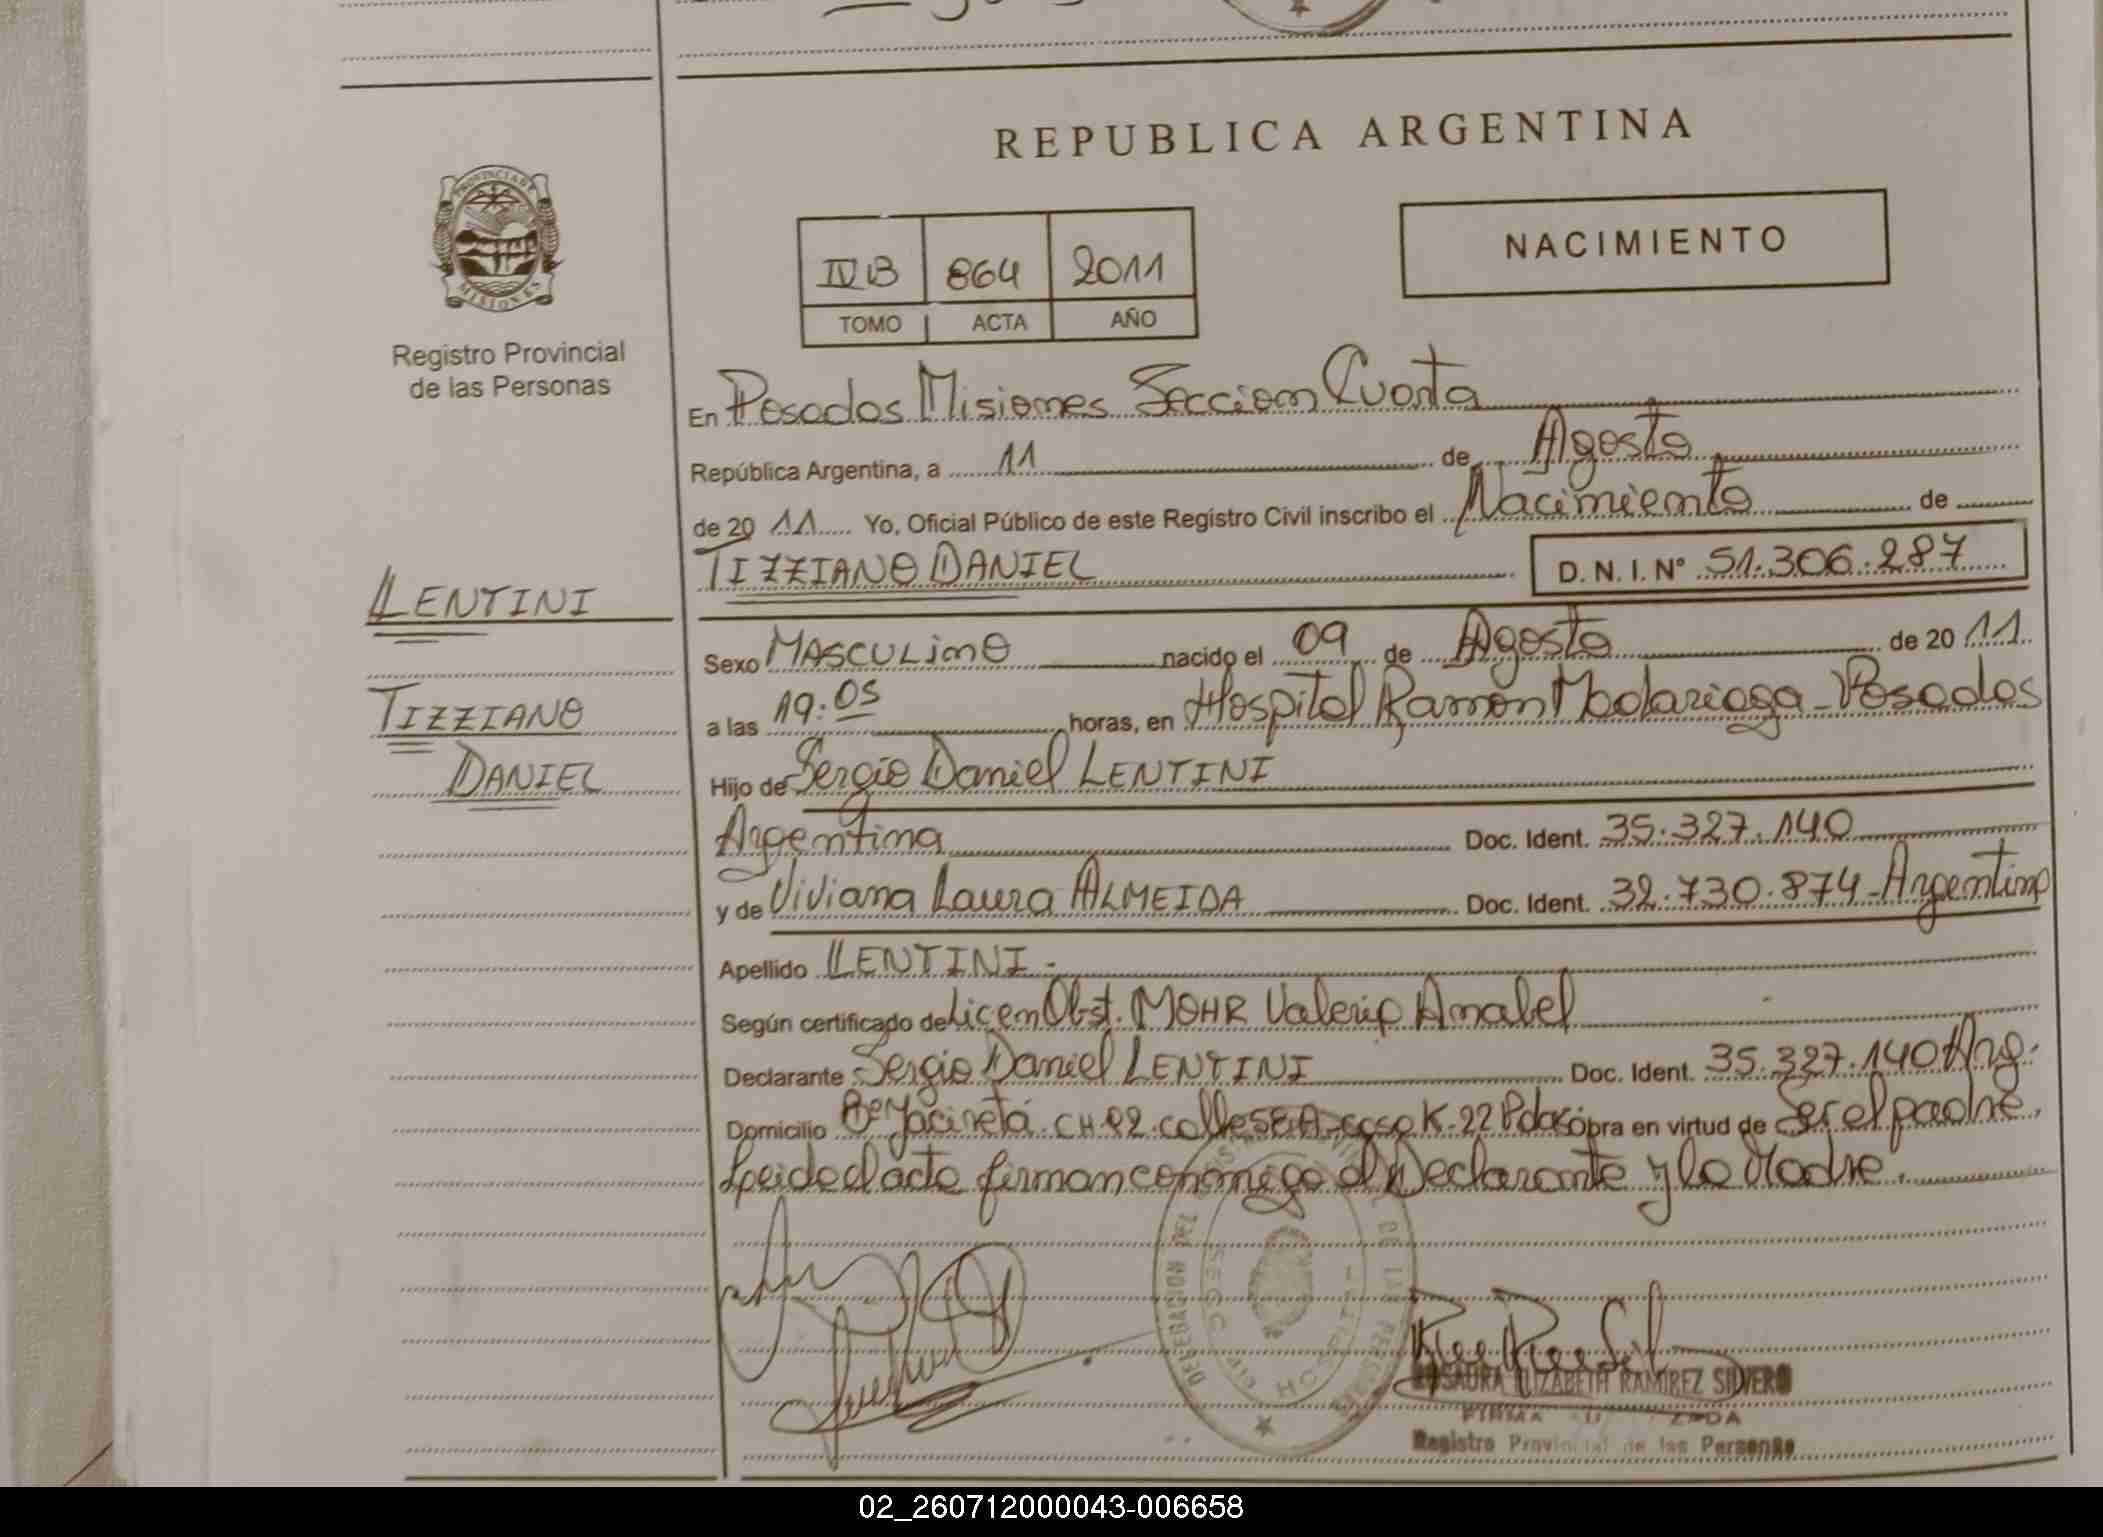 REPUBLICA ARGENTINA
PROVINCIA DE
MISIONES
Registro Provincial
de las Personas
NACIMIENTO
IV B 864 2011
TOMO ACTA AÑO
En Posadas Misiones Seccion Cuarta
República Argentina, a 11 de Agosto
de 20 11 Yo, Oficial Público de este Registro Civil inscribo el Nacimiento de
TIZZIANO DANIEL D. N. I. N° 51.306.287
LENTINI
TIZZIANO
DANIEL
Sexo MASCULINO nacido el 09 de Agosto de 20 11
a las 19:05 horas, en Hospital Ramon Madariaga - Posadas
Hijo de Sergio Daniel LENTINI
Argentina Doc. Ident. 35.327.140
y de Viviana Laura ALMEIDA Doc. Ident. 32.730.874 - Argentina
Apellido LENTINI.-
Según certificado de Licen Obst. MOHR Valeria Anabel
Declarante Sergio Daniel LENTINI Doc. Ident. 35.327.140 Arg.
Domicilio B° Yacireta CH 92 calle casa K-22 Pdas Obra en virtud de Ser el padre.
Leida el acta firman conmigo el Declarante y la Madre.
DELEGACION DEL DE LAS PERSONAS
HOSPITAL
ROSAURA ELIZABETH RAMIREZ SILVERO
FIRMA
Registro Provincial de las Personas
02_260712000043-006658